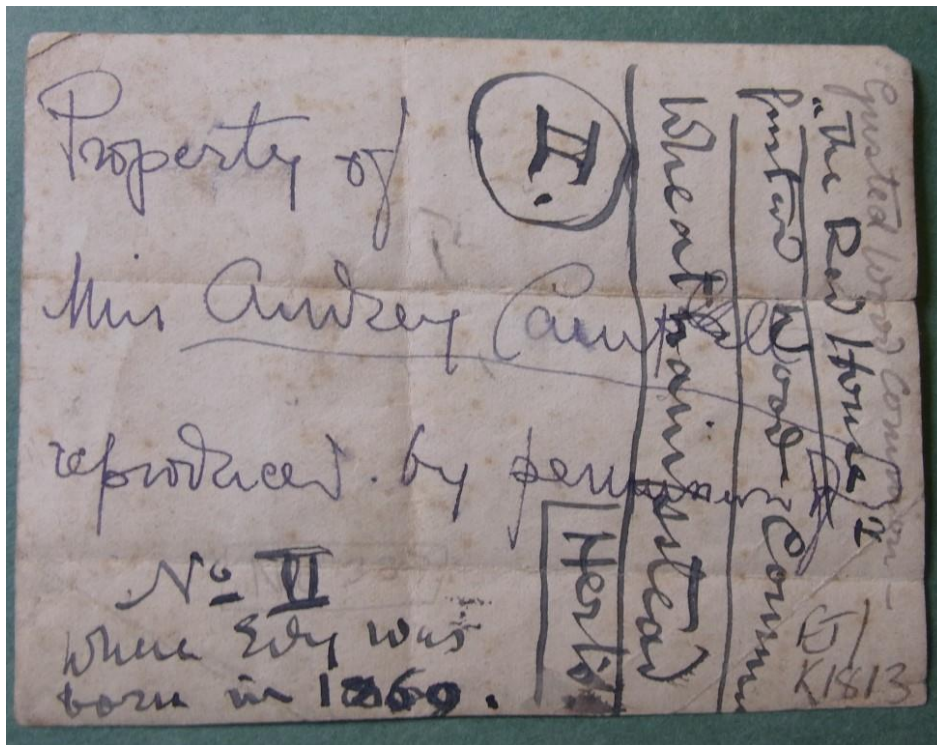 Property of
Miss Audrey Campbell
reproduced. by
No VI
where Edy was
born in 1869.
II.
Gusted Wood Common -
"The Red House"
Gusted Wood Common
Wheathampstead
Herts
K1813